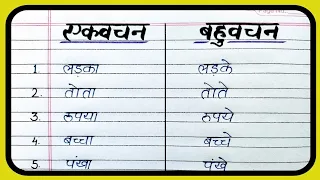 एकवचन बहुवचन
1. लड़का लड़के
2. तोता तोते
3. रुपया रुपये
4. बच्चा बच्चे
5. पंखा पंखे